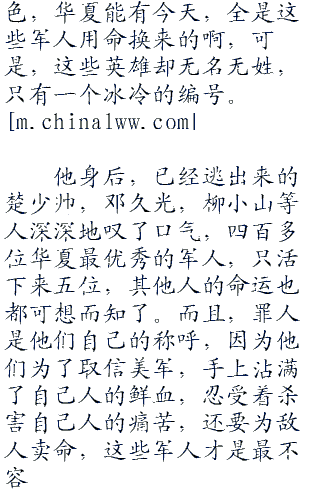 色，华夏能有今天，全是这
些军人用命换来的啊，可
是，这些英雄却无名无姓，
只有一个冰冷的编号。
[m.chinalww.com]
他身后，已经逃出来的
楚少帅，邓久光，柳小山等
人深深地叹了口气，四百多
位华夏最优秀的军人，只活
下来五位，其他人的命运也
都可想而知了。而且，罪人
是他们自己的称呼，因为他
们为了取信美军，手上沾满
了自己人的鲜血，忍受着杀
害自己人的痛苦，还要为敌
人卖命，这些军人才是最不
容